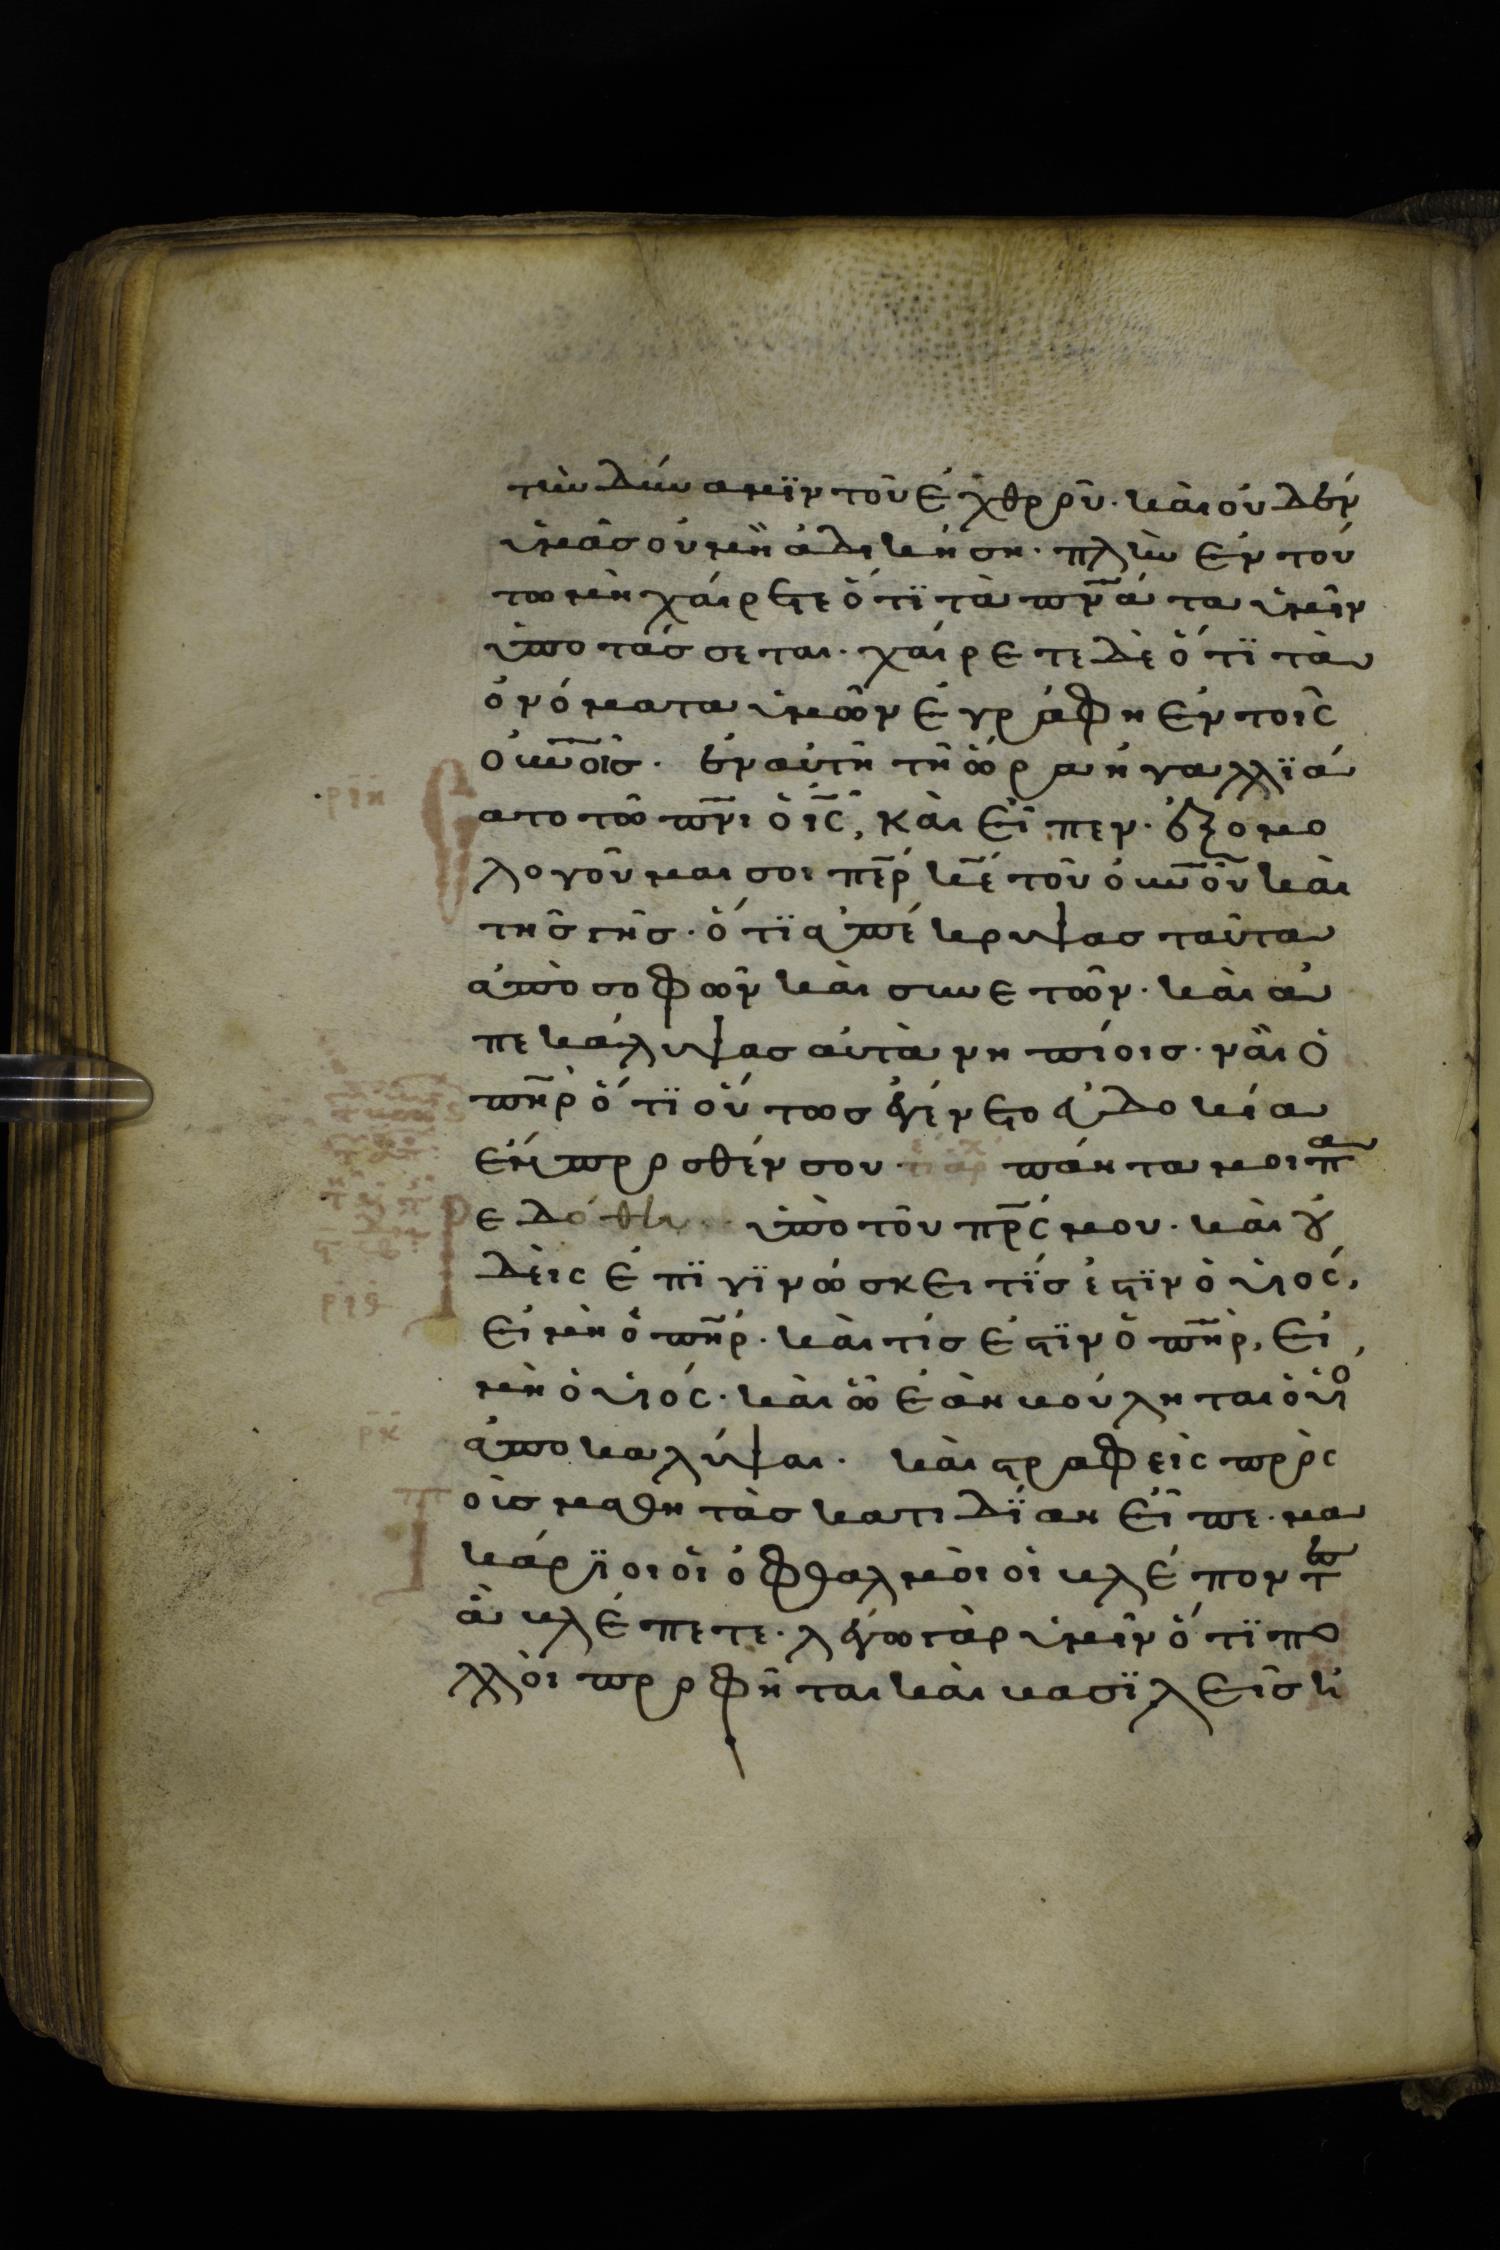 τὴν δύναμϊν τοῦ ἐχθροῦ· καὶ οὐδὲν
ὑμᾶσ οὐ μὴ ἀδικήση· πλὴν ἐν του
τω μὴ χαίρετε ὅτϊ τὰ πν̅ά̅τα ὑμῖν
ὑποτάσσεται· χαίρετε δὲ ὅτϊ τὰ
ὀνόματα ὑμῶν ἐγράφη ἐν τοῖς
ο̅υ̅ν̅οῖσ· ἐν αὐτῆ τῆ ὥρα ἠγαλλϊά
ρ̅ι̅η̅
ατο τῶ π̅ν̅ι ὁ ι̅ς̅, καὶ εἶπεν· ἐξομο
λογοῦμαι σοι π̅ε̅ρ̅ κ̅ε̅ τοῦ ο̅υ̅ν̅οῦ καὶ
τῆσ γῆσ· ὅτϊ ἀπέκρυψασ ταῦτα
ἀπὸ σοφῶν καὶ συνετῶν· καὶ ἀ
πεκάλυψασ αὐτὰ νηπίοισ· ναὶ ὁ
π̅η̅ρ̅ ὅτϊ οὕτωσ ἐγένετο εὐδοκία
ἔμπροσθέν σου πάντα μοι πα
ρ̅ι̅θ̅
εδόθη ὑπὸ τοῦ π̅ρ̅ς̅ μου· καὶ οὐ
δεὶς ἐπϊγϊνώσκει τϊσ ἐστϊν ὁ υἱός,
εἰ μὴ ὁ π̅η̅ρ̅· καὶ τίσ ἐστϊν ὁ π̅η̅ρ̅, εἰ
μὴ ὁ υἱός· καὶ ὧ ἐὰν βούληται ὁ υἱο
ρ̅κ̅
ἀποκαλύψαι· καὶ στραφεὶς πρὸς
τοὺσ μαθητὰσ κατιδϊαν εἶπε· μα
κάρϊοι οἱ ὀφθαλμοὶ οἱ βλέποντ
ἃ βλέπετε· λέγω γὰρ ὑμῖν ὅτϊ πο
λλοὶ προφῆται καὶ βασϊλεῖσ ἠ